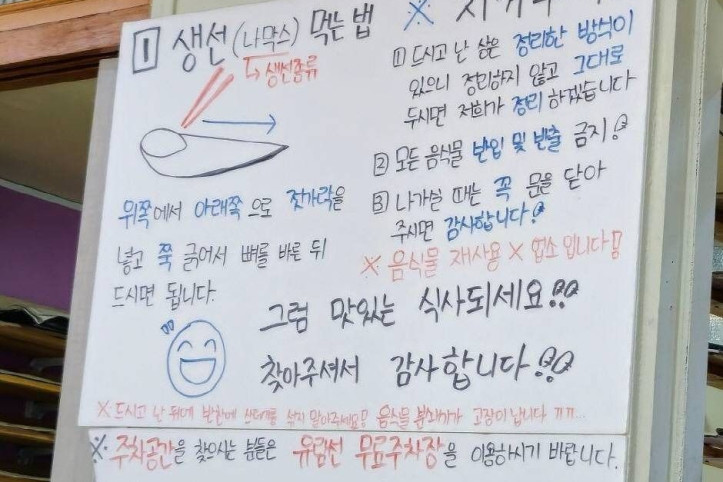 1 생선 (나막스) 먹는 법
↳ 생선종류
위쪽에서 아래쪽으로 젓가락을
넣고 쭉 긁어서 뼈를 바른 뒤
드시면 됩니다.
※
① 드시고 난 상은 정리한 방식이
있으니 정리하지 않고 그대로
두시면 저희가 정리하겠습니다
② 모든 음식물 반입 및 반출 금지!
③ 나가실 때는 꼭 문을 닫아
주시면 감사합니다!
※ 음식물 재사용 X 업소입니다!
그럼 맛있는 식사되세요!!
찾아주셔서 감사합니다!!
※ 드시고 난 뒤에 반찬에 쓰레기를 섞지 말아주세요! 음식물 분쇄기가 고장이 납니다 ㅠㅠ...
※ 주차공간을 찾으시는 분들은 유람선 무료주차장을 이용하시기 바랍니다.